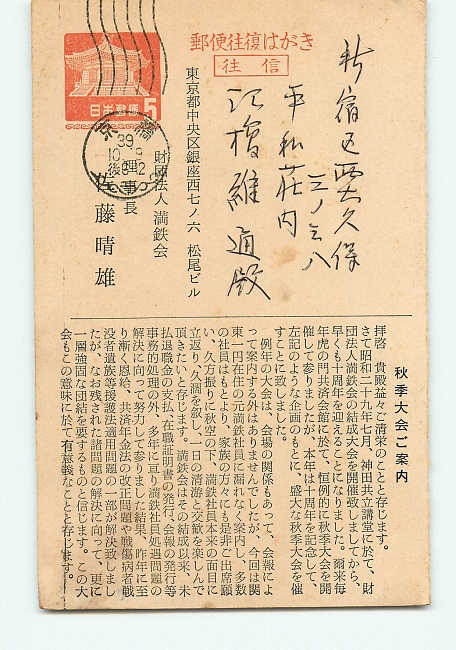 郵便往復はがき
往信
日本郵便
5
京橋
39.9.2
後
新宿区西大久保
三ノ三八
平和荘内
江橋維通殿
東京都中央区銀座西七ノ六 松尾ビル
財団法人 満鉄会
理事長
佐藤晴雄
秋季大会ご案内
拝啓 貴殿益々ご清栄のことと存じます。
さて昭和二十九年七月、神田共立講堂に於て、財
団法人満鉄会の結成大会を開催致しましてから、
早くも十周年を迎えることになりました。爾来毎
年虎の門共済会館に於て、恒例的に秋季大会を開
催して参りましたが、本年は十周年を記念して、
左記のような企画のもとに、盛大な秋季大会を催
すことに致しました。
例年の大会は、会場の関係もあって、会報によ
って案内する外はありませんでしたが、今回は関
東一円在住の元満鉄社員に漏れなく案内し、多数
の社員はもとより、家族の方々にも是非ご出席願
い、久方振りに秋空の下、満鉄社員本来の面目に
立返り、久濶を叙し、一日の清游と交歓を楽しんで
頂きたいと存じます。満鉄会はその結成以来、未
払退職金の支払、在職証明書の発行、会報の発行等
事務的処理の外、多年に亘り満鉄社員処遇問題の
解決に向って努力して参りました結果、昨年に至
り漸く恩給、共済年金法の改正問題や戦傷病者戦
没者遺族等援護法適用問題の一部が解決致しまし
たが、なお残された諸問題の解決に向って、更に
一層強固な団結を要するものと信じます。この大
会もこの意味に於て有意義なことと存じます。